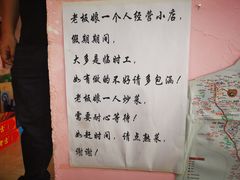 老板娘一个人经营小店，
假期期间，
大多是临时工，
如有做的不好请多包涵！
老板娘一人炒菜，
需要耐心等待！
如赶时间，请点熟菜，
谢谢！